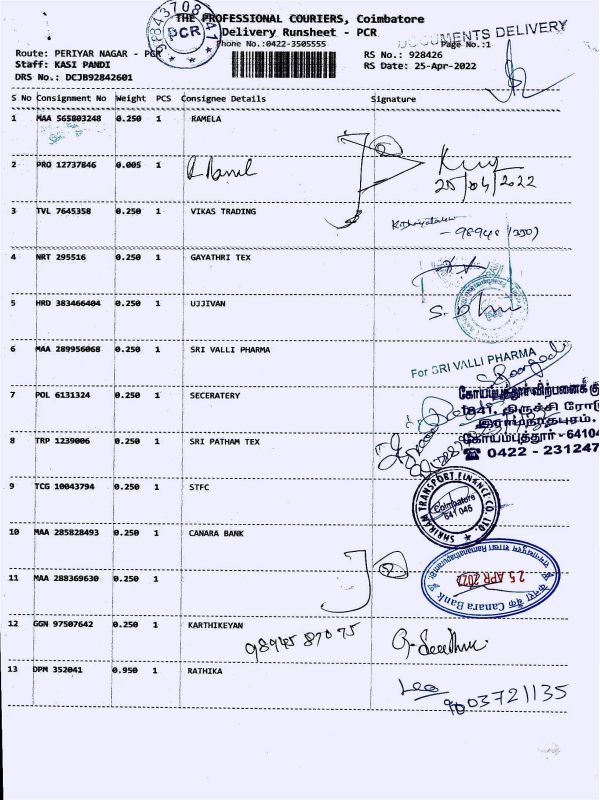 THE PROFESSIONAL COURIERS, Coimbatore
Delivery Runsheet - PCR
Phone No.:0422-3505555
Page No.:1
DOCUMENTS DELIVERY
PCR
Route: PERIYAR NAGAR - PCR
Staff: KASI PANDI
DRS No.: DCJB92842601
RS No.: 928426
RS Date: 25-Apr-2022
S No Consignment No Weight PCS Consignee Details Signature
1 MAA 565803248 0.250 1 RAMELA
2 PRO 12737846 0.005 1
25/04/2022
3 TVL 7645358 0.250 1 VIKAS TRADING
4 NRT 295516 0.250 1 GAYATHRI TEX
5 HRD 383466404 0.250 1 UJJIVAN
6 MAA 289956068 0.250 1 SRI VALLI PHARMA
For SRI VALLI PHARMA
7 POL 6131324 0.250 1 SECERATERY
1841, திருச்சி ரோடு
இராமநாதபுரம்,
8 TRP 1239006 0.250 1 SRI PATHAM TEX
கோயம்புத்தூர் - 64104
☎ 0422 - 231247
9 TCG 10043794 0.250 1 STFC
SHRIRAM TRANSPORT FINANCE CO. LTD.
Coimbatore
641 045
10 MAA 285828493 0.250 1 CANARA BANK
25 APR 2022
केनरा बैंक Canara Bank
11 MAA 288369630 0.250 1
12 GGN 97507642 0.250 1 KARTHIKEYAN
98945 87075
13 DPM 352041 0.950 1 RATHIKA
9003721135